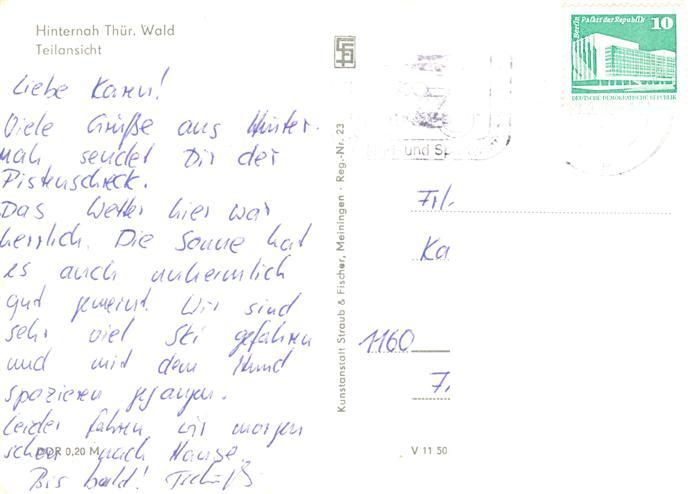 Hinternah Thür. Wald
Teilansicht
Liebe Karen!
Viele Grüße aus Hinter-
nah sendet Dir der
Pistenschreck.
Das Wetter hier war
herrlich. Die Sonne hat
es auch unheimlich
gut gemeint. Wir sind
sehr viel Ski gefahren
und mit dem Hund
spazieren gegangen.
Leider fahren wir morgen
schon nach Hause.
Bis bald! Tschüß
DDR 0,20 M
Kunstanstalt Straub & Fischer, Meiningen · Reg.-Nr. 23
V 11 50
und
Berlin Palast der Republik
10
DEUTSCHE DEMOKRATISCHE REPUBLIK
Frl.
Ka
1160
7.